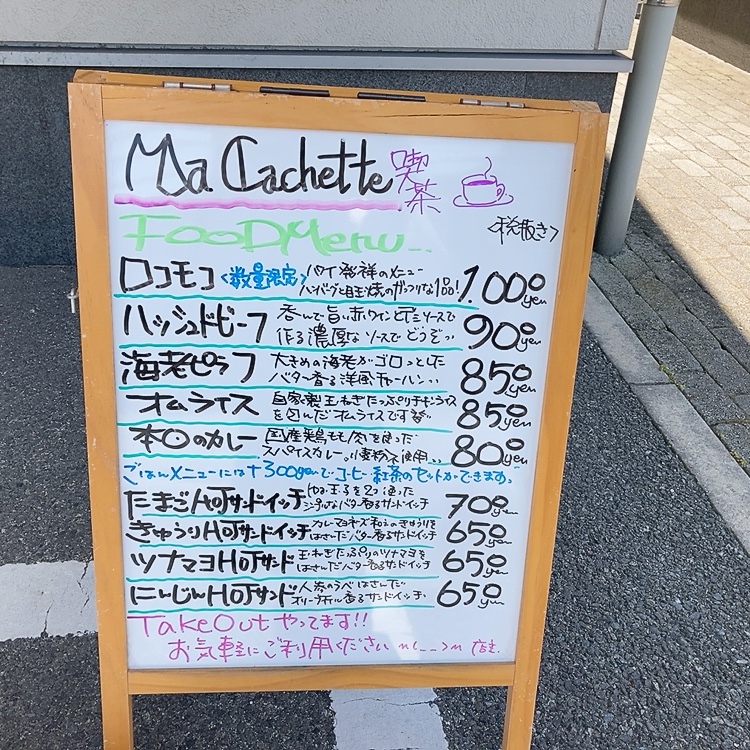 Ma Cachette 喫茶
Food Menu...
<税抜き>
ロコモコ <数量限定> ハワイ発祥のメニュー
ハンバーグと目玉焼のガッツリな1品! 1,000yen
ハッシュドビーフ 呑んで旨い赤ワインとデミソースで
作る濃厚なソースでどうぞ 900yen
海老ピラフ 大きめの海老がゴロっとした
バター香る洋風チャーハン 850yen
オムライス 自家製玉ねぎたっぷりチキンライス
を包んだオムライスです 850yen
本日のカレー 国産鶏もも肉を使った
スパイスカレー。小麦粉不使用 800yen
ごはんメニューには+300yenでコーヒー紅茶のセットができます。
たまごHOTサンドイッチ 玉子を2つ使った
シンプルなバター香るサンドイッチ 700yen
きゅうりHOTサンドイッチ カラシマヨネーズ和えのきゅうりを
はさんだバター香るサンドイッチ 650yen
ツナマヨHOTサンド 玉ねぎたっぷりのツナマヨを
はさんだバター香るサンドイッチ 650yen
にんじんHOTサンド 人参のラペはさんだ
オリーブオイル香るサンドイッチ 650yen
TakeOutやってます!!
お気軽にご利用ください m(_ _)m 店主.